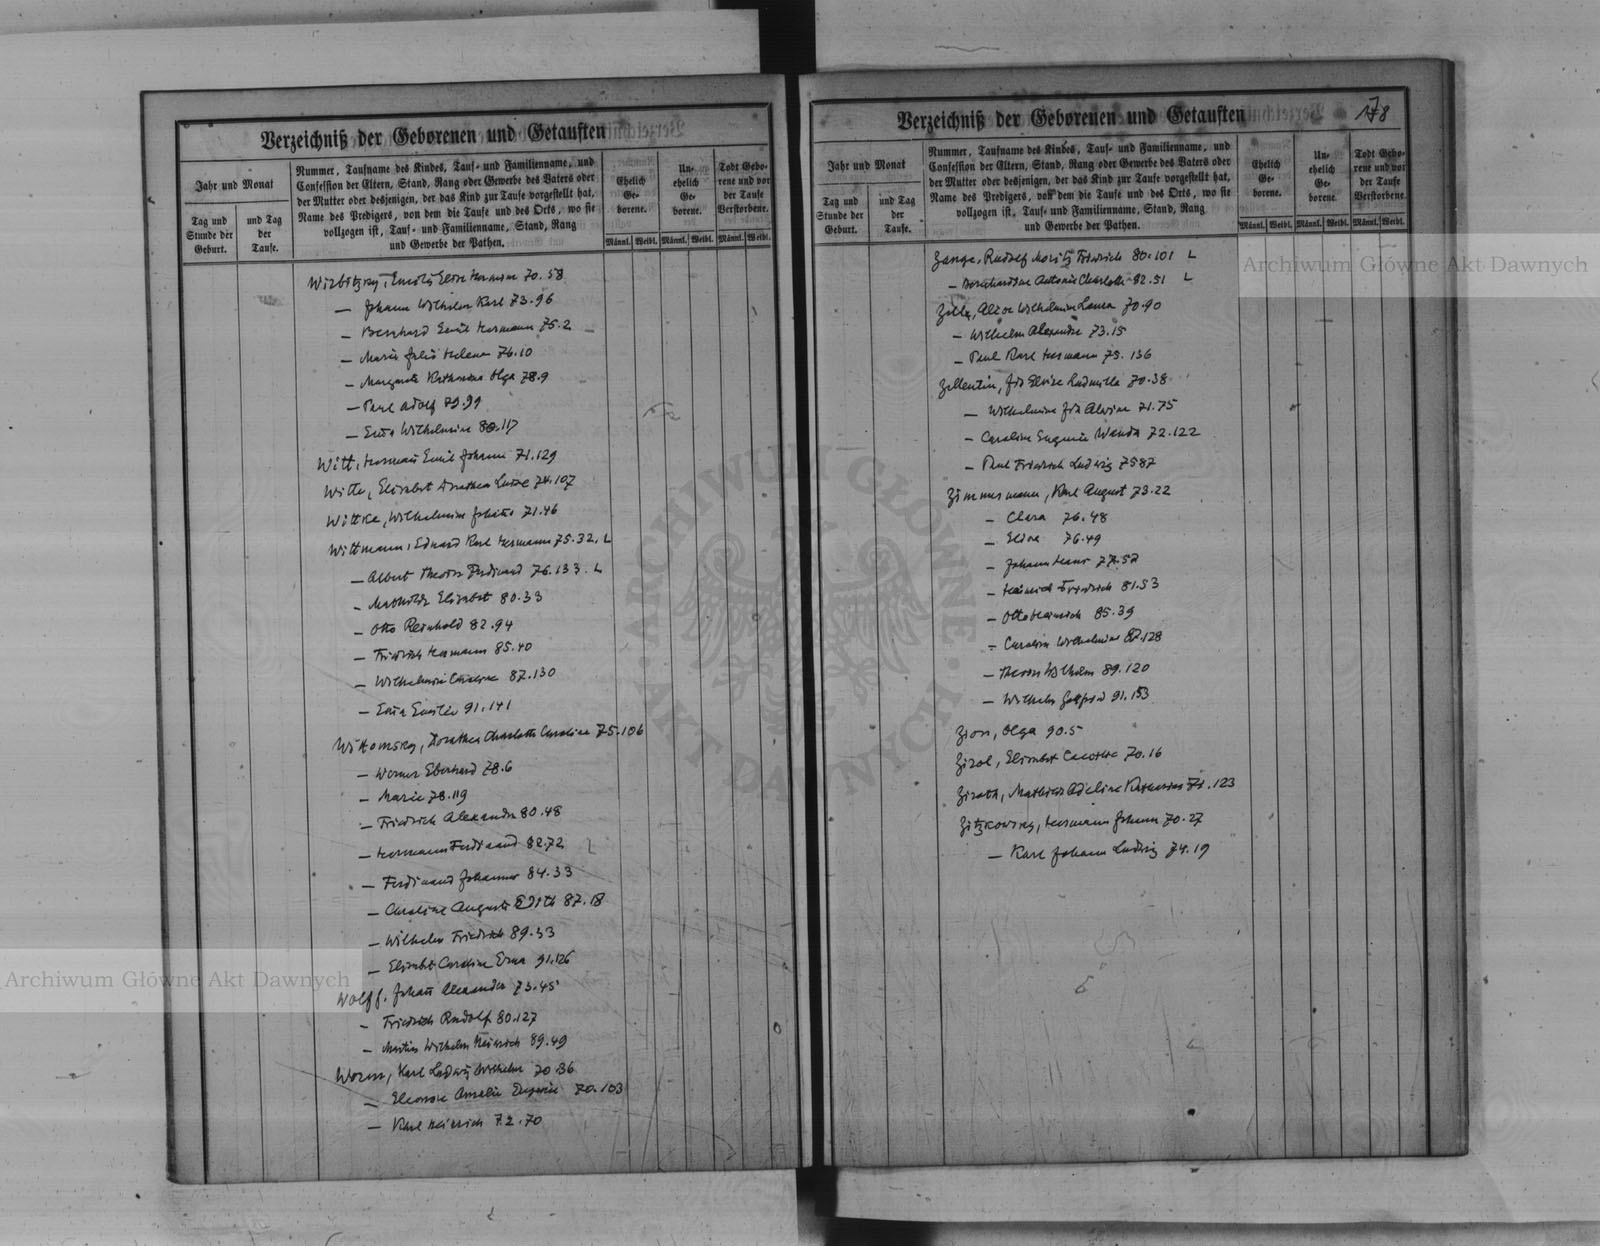 Verzeichniß der Geborenen und Getauften
Jahr und Monat
Tag und Stunde der Geburt.
und Tag der Taufe.
Nummer, Taufname des Kindes, Tauf- und Familienname, und
Confession der Eltern, Stand, Rang oder Gewerbe des Vaters oder
der Mutter oder desjenigen, der das Kind zur Taufe vorgestellt hat,
Name des Predigers, von dem die Taufe und des Orts, wo sie
vollzogen ist, Tauf- und Familienname, Stand, Rang
und Gewerbe der Pathen.
Ehelich Ge-borene.
Un-ehelich Ge-borene.
Todt Gebo-rene und vor der Taufe Verstorbene.
Männl. Weibl. Männl. Weibl. Männl. Weibl.
Elise Hermine 70.58
— Johann Wilhelm Karl 73.96
— Bernhard Emil Hermann 75.2
— Marie Helene 76.10
— Margarete Katharina Olga 78.9
— Paul Adolf 79.99
— Wilhelmine 80.117
Witt, Hermann Emil Johann 71.129
Witte, Elisabet Dorothea Luise 74.107
Wittke, Wilhelmine 71.46
Wittmann, Eduard Karl Hermann 75.32. L
— Albert Theodor Ferdinand 76.133. L
— Mathilde Elisabet 80.33
— Otto Reinhold 82.94
— Friedrich Hermann 85.40
— Wilhelmine Caroline 87.130
— Emilie 91.141
Dorothea Charlotte Caroline 75.106
— Werner Eberhard 78.6
— Marie 78.119
— Friedrich Alexander 80.48
— Hermann Ferdinand 82.72
— Ferdinand Johannes 84.33
— Caroline Auguste Edith 87.18
— Wilhelm Friedrich 89.33
— Elisabet Caroline Erna 91.126
Wolff, Johann Alexander 73.45
— Friedrich Rudolf 80.127
— Martin Wilhelm Heinrich 89.49
Worm, Karl Ludwig Wilhelm 70.36
— Eleonore Amalie Eugenie 70.103
— Karl Heinrich 72.70
Verzeichniß der Geborenen und Getauften
178
Jahr und Monat
Tag und Stunde der Geburt.
und Tag der Taufe.
Nummer, Taufname des Kindes, Tauf- und Familienname, und
Confession der Eltern, Stand, Rang oder Gewerbe des Vaters oder
der Mutter oder desjenigen, der das Kind zur Taufe vorgestellt hat,
Name des Predigers, von dem die Taufe und des Orts, wo sie
vollzogen ist, Tauf- und Familienname, Stand, Rang
und Gewerbe der Pathen.
Ehelich Ge-borene.
Un-ehelich Ge-borene.
Todt Gebo-rene und vor der Taufe Verstorbene.
Männl. Weibl. Männl. Weibl. Männl. Weibl.
Zange, Rudolf Moritz Friedrich 80.101 L
— Bernhardine Antonie Charlotte 82.51 L
Zille, Alice Wilhelmine Laura 70.90
— Wilhelm Alexander 73.15
— Paul Karl Hermann 75.136
Zellentin, Ida Elvire Ludmilla 70.38
— Wilhelmine Ida Alwine 71.75
— Caroline Eugenie Wanda 72.122
— Paul Friedrich Ludwig 75 87
Zimmermann, Karl August 73.22
— Clara 76.48
— Elise 76.49
— Johann 77.52
— Heinrich Friedrich 81.53
— Otto Heinrich 85.39
— Caroline Wilhelmine 87.128
— Theodor Wilhelm 89.120
— Wilhelm Gottfried 91.153
Olga 90.5
Elisabet 70.16
Adeline Katharina 71.123
Zitzkowsky, Hermann Johann 70.27
— Karl Johann Ludwig 74.19
Archiwum Główne Akt Dawnych
Archiwum Główne Akt Dawnych
ARCHIWUM GŁÓWNE AKT DAWNYCH